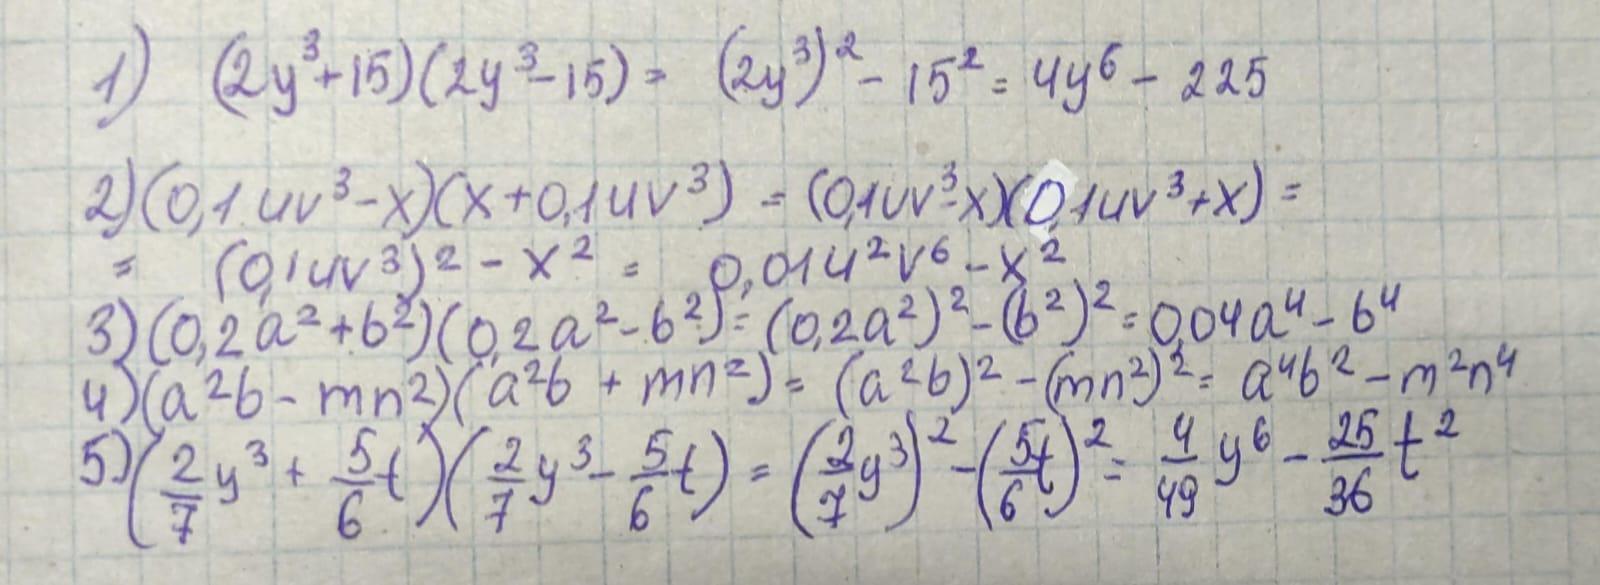 1) (2y³+15)(2y³-15) = (2y³)² - 15² = 4y⁶ - 225
2) (0,1uv³-x)(x+0,1uv³) = (0,1uv³-x)(0,1uv³+x) =
= (0,1uv³)² - x² = 0,01u²v⁶ - x²
3) (0,2a²+b²)(0,2a²-b²) = (0,2a²)² - (b²)² = 0,04a⁴ - b⁴
4) (a²b - mn²)(a²b + mn²) = (a²b)² - (mn²)² = a⁴b² - m²n⁴
5) (2/7 y³ + 5/6 t)(2/7 y³ - 5/6 t) = (2/7 y³)² - (5/6 t)² = 4/49 y⁶ - 25/36 t²